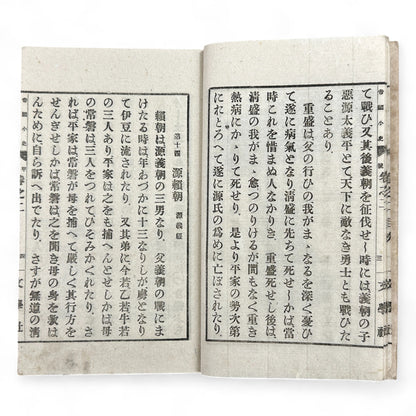 て戰ひ又其後義朝を征伐せし時には義朝の子
惡源太義平とて天下に敵なき勇士とも戰ひた
ることあり、
重盛は父の行ひの我がまゝなるを深く憂ひ
て遂に病氣となり淸盛に先ちて死せしかば當
時これを惜まぬ人なかりき、重盛死せし後は、
淸盛の我がまゝ愈つのりけるが間もなく重き
熱病にかゝりて死せり、是より平家の勢次第
におとろへて遂に源氏の爲めに亡ぼされたり、
帝國小史
三
文學社
第十四 源賴朝 源義經
賴朝は源義朝の三男なり、父義朝の戰にま
けたる時は年わづかに十三なりしが虜となり
て伊豆に流されたり、又其弟に今若乙若牛若
の三人あり平家は之をも捕へんとせしかば母
の常磐は三人をつれてひそみかくれたり、さ
れば平家は常磐が母を捕へて嚴しく其行方を
せんぎせしかば常磐は之を聞き母の身を救は
んために自ら訴へ出でたり、さすが無道の淸
帝國小史
四
文學社